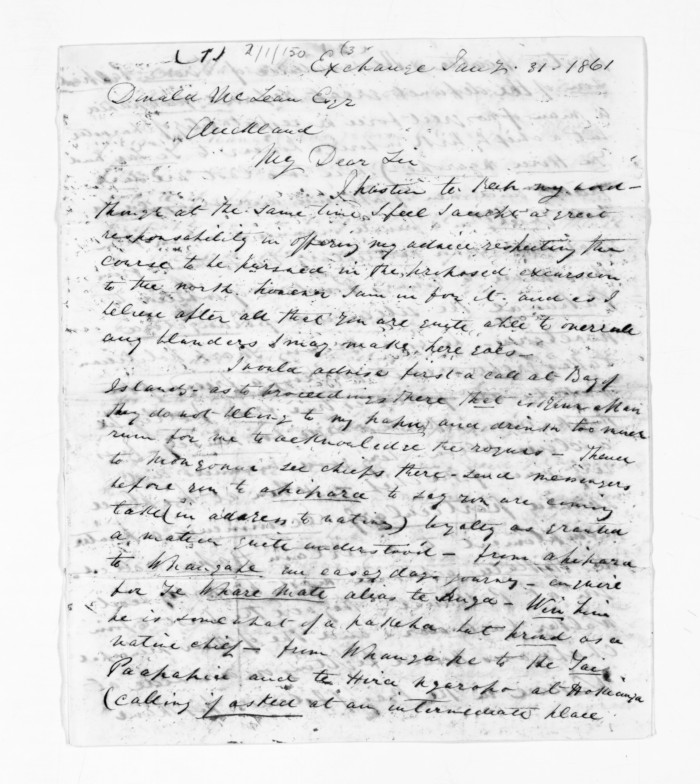 2/1/150
Exchange Jany. 31. 1861
Donald McLean Esqr
Auckland
My Dear Sir
I hasten to keep my word
though at the same time I feel I accept a great
responsibility in offering my advice respecting the
course to be pursued in the proposed excursion
to the north however I am in for it. and as I
believe after all that you are quite able to overrule
any blunders I may make, here goes.
I would advise first a call at Bay of
Islands. as to proceedings there that is
they do not belong to my hapu and drink too much
rum for me to acknowledge the rogues - Thence
to Mongonui see chiefs there - send messengers
before you to Ahipara to say you are coming
take (in address to natives) loyalty as granted
a matter quite understood - from Ahipara
to Whangape an easy days journey - enquire
for Te Whare Mate alias te Ruga - Win him
he is somewhat of a pakeha but proud as a
native chief - from Whangape to the
Paapahia and te Hira Ngaropo at Hokianga
(calling if asked at an intermediate place